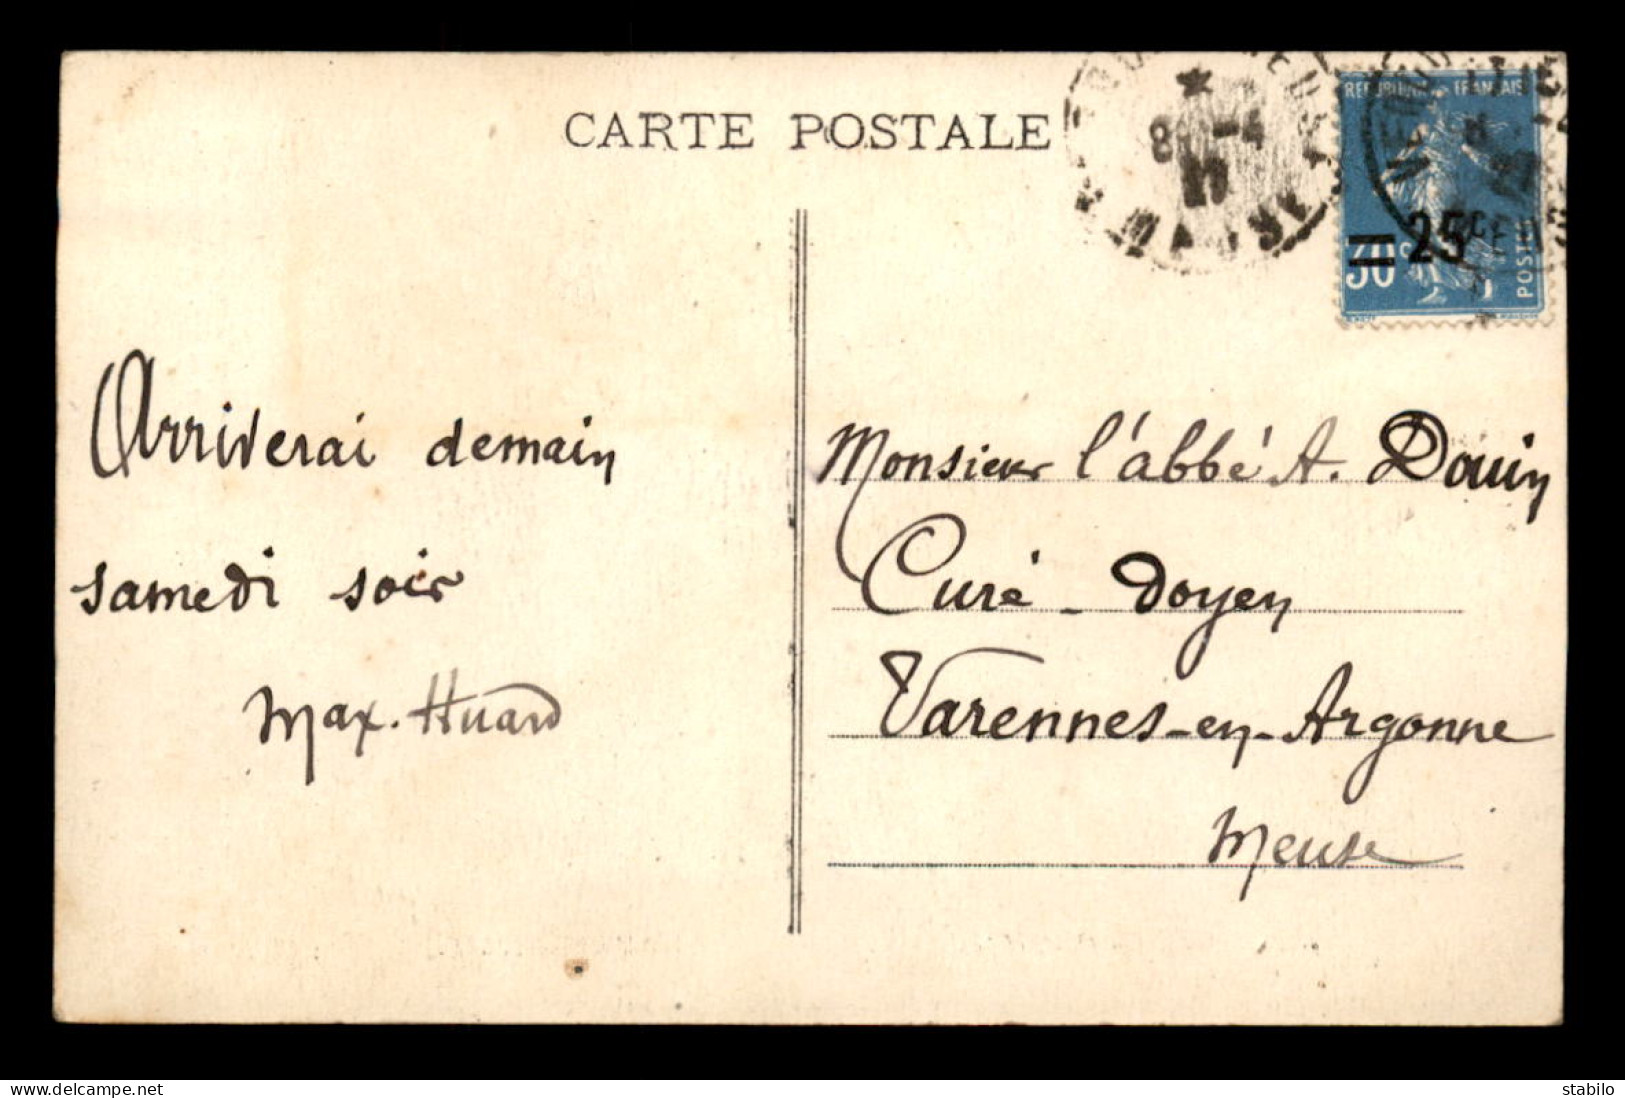 CARTE POSTALE
REPUBLIQUE FRANÇAISE
30c
25c
POSTES
Arriverai demain
samedi soir
Max. Huard
Monsieur l'abbé A. Douin
Curé - Doyen
Varennes-en-Argonne
Meuse
8 -4
MARNE
delcampe.net
stabilo